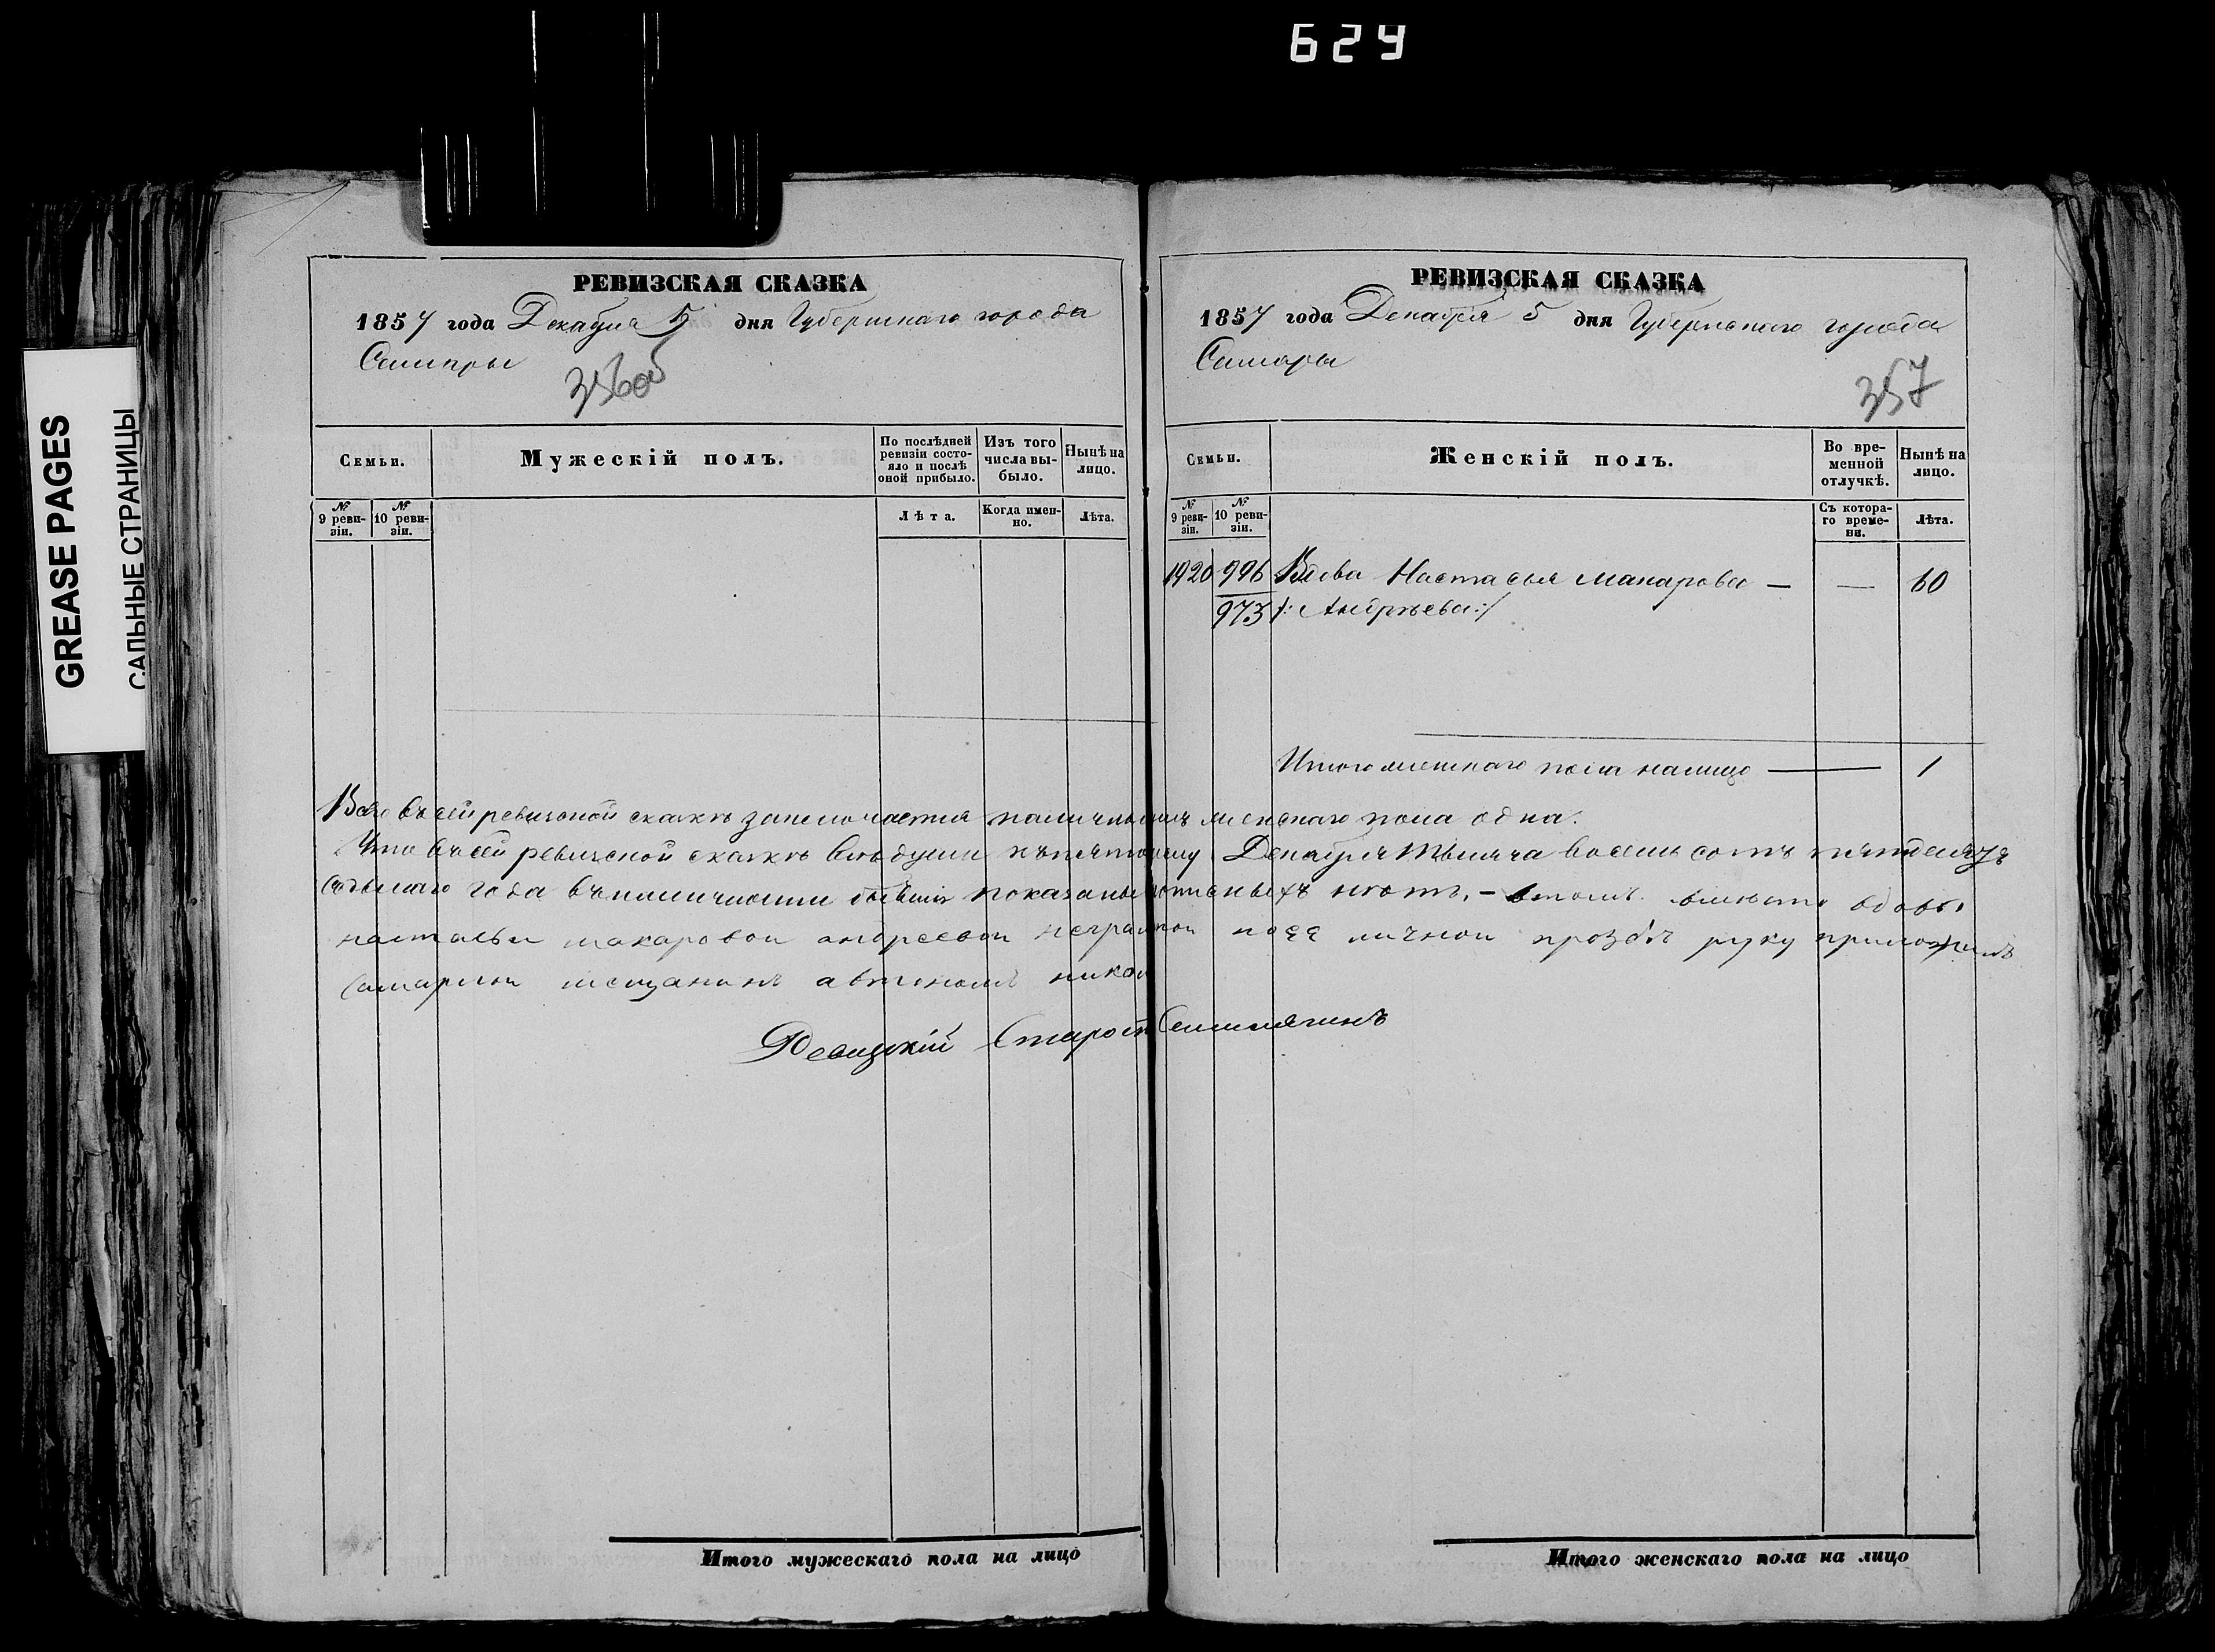 624
GREASE PAGES
САЛЬНЫЕ СТРАНИЦЫ
РЕВИЗСКАЯ СКАЗКА
1857 года Декабря 5 дня Губернскаго города
Самары
356об
Семьи.
Мужескій полъ.
По послѣдней ревизіи состояло и послѣ оной прибыло.
Изъ того числа выбыло.
Нынѣ на лицо.
№ 9 ревизіи.
№ 10 ревизіи.
Лѣта.
Когда именно.
Лѣта.
РЕВИЗСКАЯ СКАЗКА
1857 года Декабря 5 дня Губернскаго города
Самары
357
Семьи.
Женскій полъ.
Во временной отлучкѣ.
Нынѣ на лицо.
№ 9 ревизіи.
№ 10 ревизіи.
Съ котораго времени.
Лѣта.
1920 996 Вдова Настасья Макарова — — 60
973 /: Андрѣева :/
Итого женскаго пола налицо — 1
Всего въ сей ревизской сказкѣ заключается наличныхъ женскаго пола одна.
Что въ сей ревизской сказкѣ всѣ души къ пятому Декабря тысяча восемь сотъ пятьдесятъ
седьмаго года въ наличности бывшія показаны нѣтъ, – въ томъ вмѣсто вдовы
настасьи макаровой андреевой неграмотной по ее личной прозбѣ руку приложилъ
самарскій мещанинъ автономъ
Ревизскій Староста
Итого мужескаго пола на лицо
Итого женскаго пола на лицо